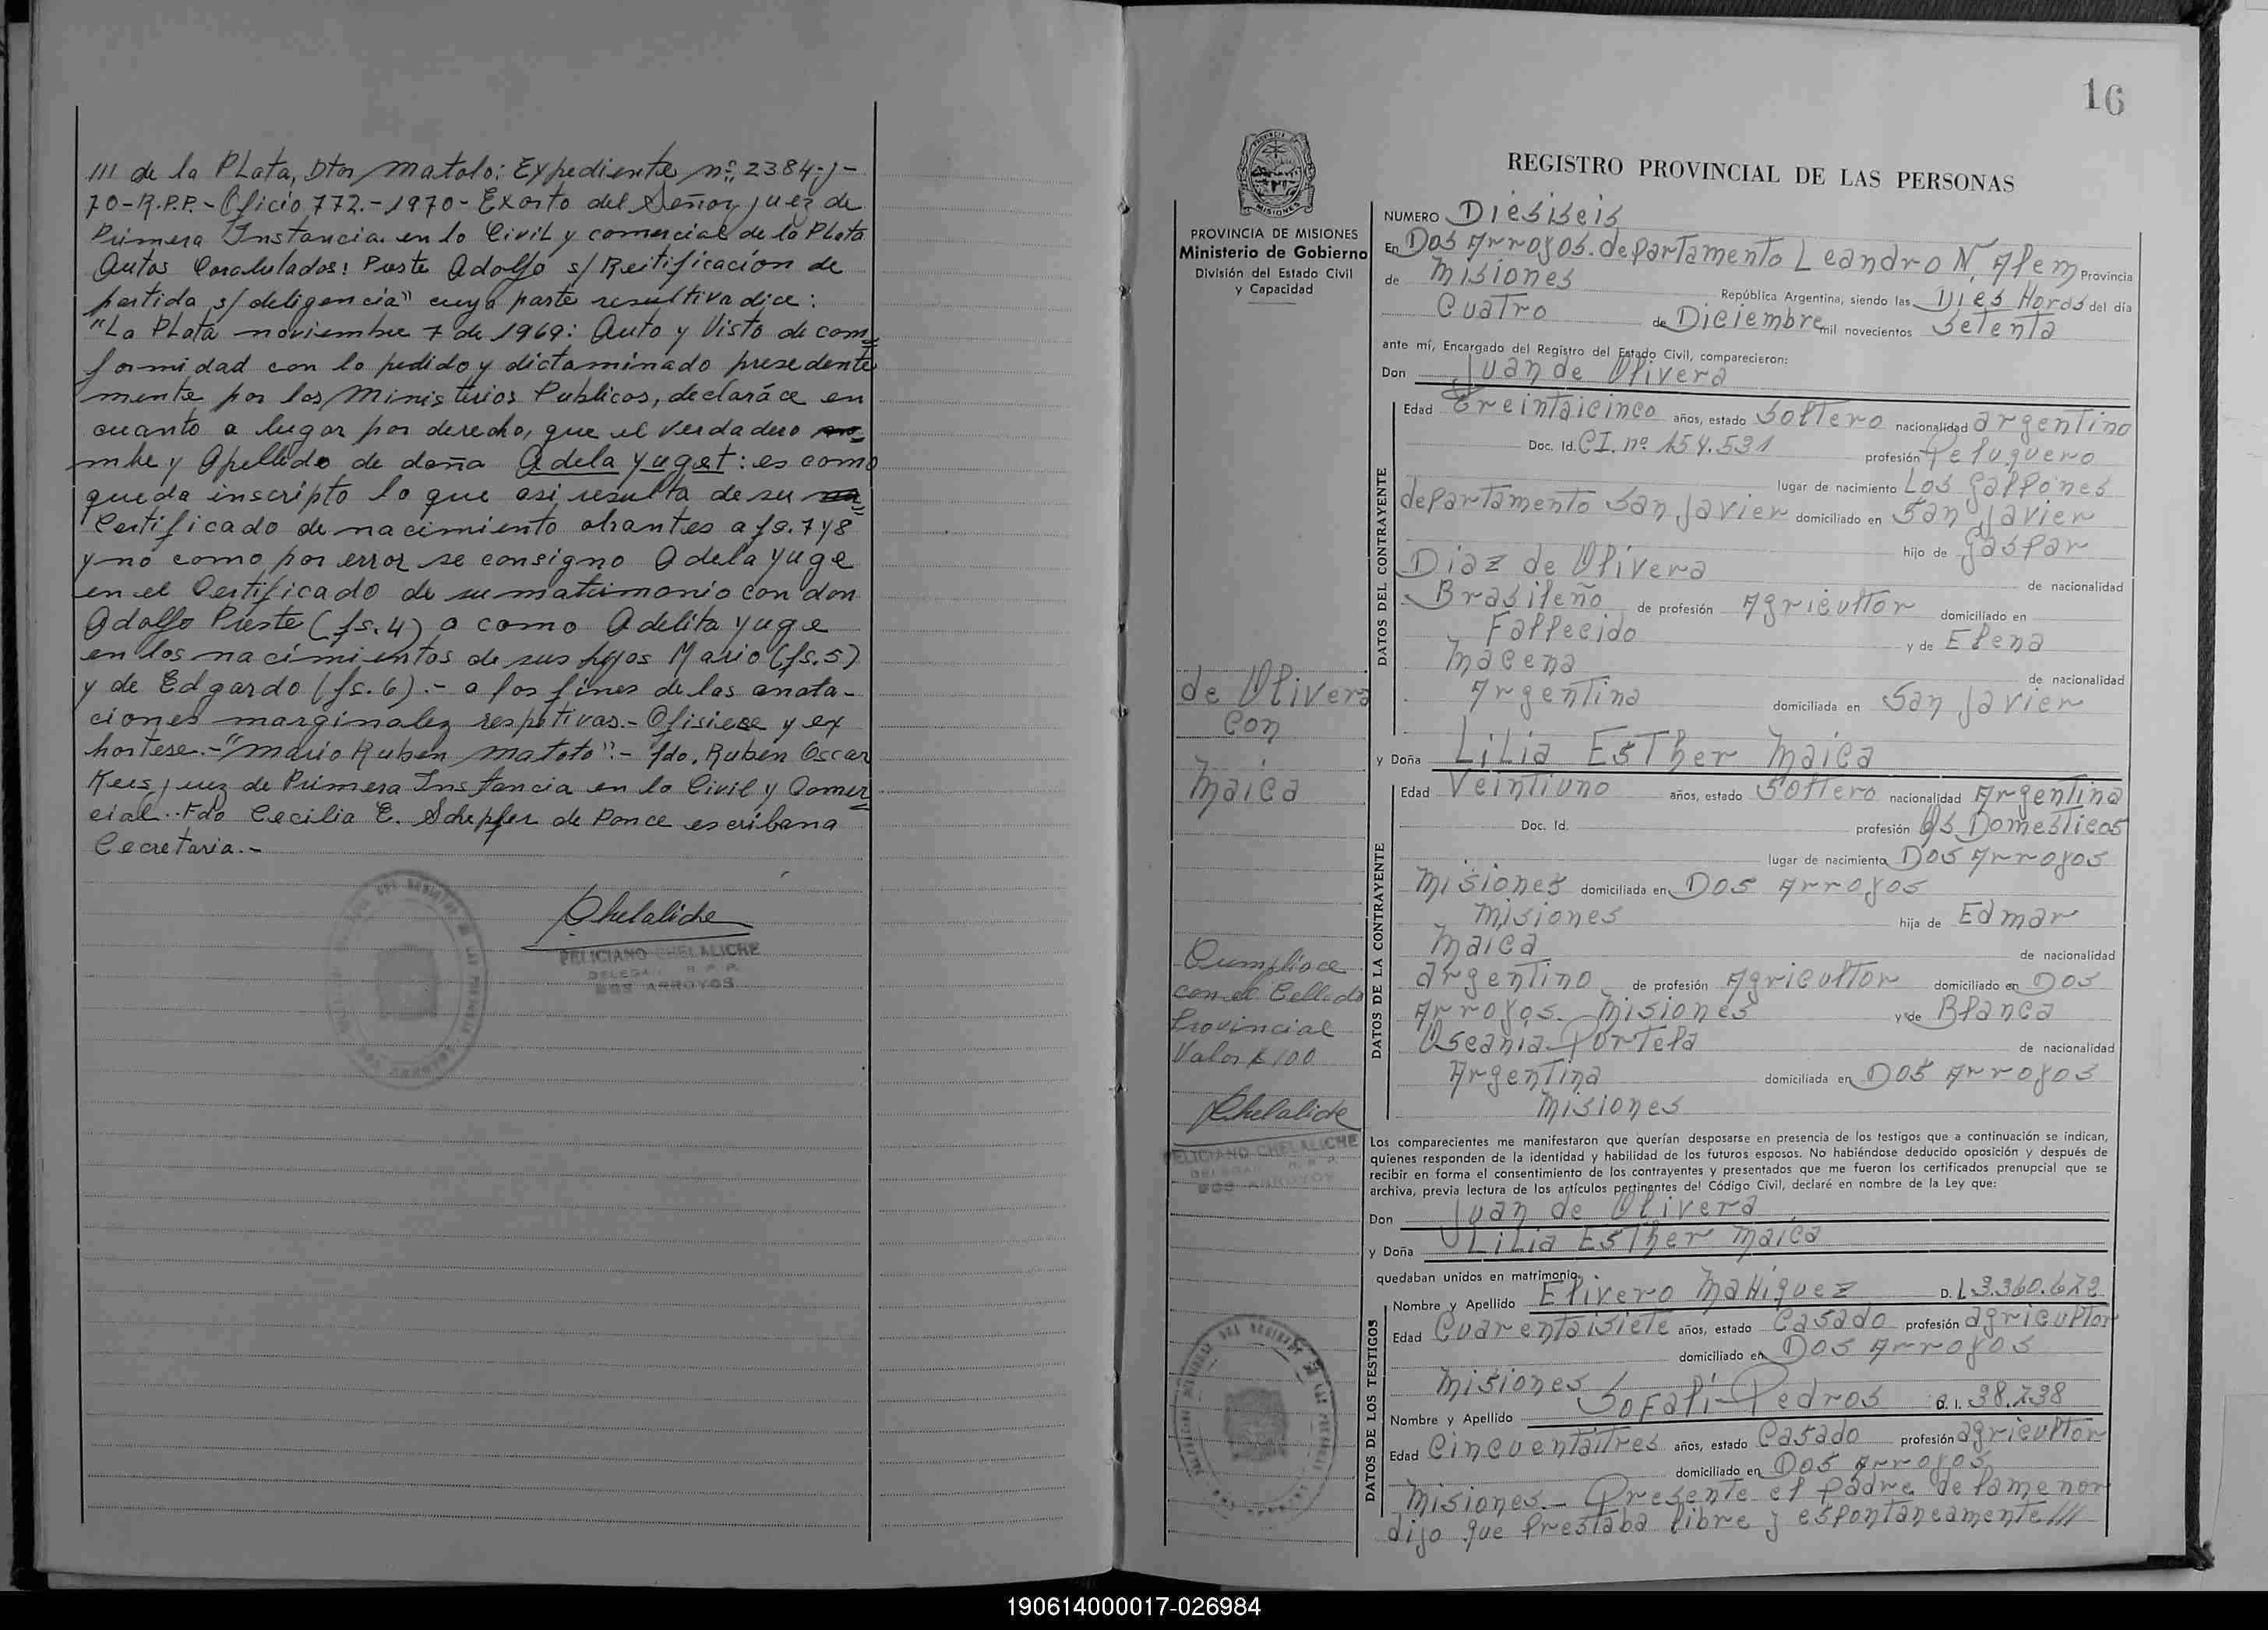 III de la PLata, Dtor Matolo: Expediente nº 2384-J-
70-R.P.P.- Oficio 772.-1970- Exorto del Señor Juez de
Primera Instancia en lo Civil y comercial de la Plata
Autos Caralulados: Pieste Adolfo s/ Reitificación de
partida s/ deligencia" cuya parte resultiva dice:
"La PLata noviembre 7 de 1969: Auto y Visto de com=
formidad con lo pedido y dictaminado presedente
mente por los Ministerios Publicos, declaráce en
cuanto a lugar por derecho, que el verdadero no=
mbe y Apellido de doña Adela Yuget: es como
queda inscripto lo que asi resulta de su
Certificado de nacimiento obrantes a fs. 7 y 8
y no como por error se consigno Adela Yuge
en el Certificado de su matrimonio con don
Adolfo Pieste (fs. 4) o como Adelita Yuge
en los nacimientos de sus hijos Mario (fs. 5)
y de Edgardo (fs. 6).- a los fines de las anota-
ciones marginales respetivas.- Ofisiese y ex
hortese.- "Mario Ruben Matoto".- fdo. Ruben Oscar
Keis Juez de Primera Instancia en lo Civil y Comer=
cial.. Fdo Cecilia E. Schepfer de Ponce escribana
Cecretaria.-
Chelaliche
FELICIANO CHELALICHE
DELEGA R. P. P.
DOS ARROYOS
16
MISIONES
PROVINCIA DE MISIONES
Ministerio de Gobierno
División del Estado Civil
y Capacidad
de Olivera
con
Maica
Cumplioce
con el Cellado
Provincial
Valor $ 100
Chelaliche
FELICIANO CHELALICHE
R. P. P.
DOS ARROYOS
REGISTRO PROVINCIAL DE LAS PERSONAS
NUMERO Diésiseis
En Dos Arroyos. departamento Leandro N. Alem Provincia
de Misiones República Argentina, siendo las Diés Horas del día
Cuatro de Diciembre mil novecientos Setenta
ante mí, Encargado del Registro del Estado Civil, comparecieron:
Don Juan de Olivera
DATOS DEL CONTRAYENTE
Edad Treintaicinco años, estado Soltero nacionalidad argentino
Doc. Id. CI. nº 154.531 profesión Peluquero
lugar de nacimiento Los Galpones
departamento San Javier domiciliado en San Javier
hijo de Gaspar
Diaz de Olivera de nacionalidad
Brasileño de profesión Agricultor domiciliado en
Fallecido y de Elena
Macena de nacionalidad
Argentina domiciliada en San Javier
y Doña Lilia Esther Maica
DATOS DE LA CONTRAYENTE
Edad Veintiuno años, estado Soltero nacionalidad Argentina
Doc. Id. profesión Qs Domesticos
lugar de nacimiento Dos Arroyos
Misiones domiciliada en Dos Arroyos
Misiones hija de Edmar
Maica de nacionalidad
argentino de profesión Agricultor domiciliado en Dos
Arroyos. Misiones y de Blanca
Oseania Portela de nacionalidad
Argentina domiciliada en Dos Arroyos
Misiones
Los comparecientes me manifestaron que querían desposarse en presencia de los testigos que a continuación se indican,
quienes responden de la identidad y habilidad de los futuros esposos. No habiéndose deducido oposición y después de
recibir en forma el consentimiento de los contrayentes y presentados que me fueron los certificados prenupcial que se
archiva, previa lectura de los artículos pertinentes del Código Civil, declaré en nombre de la Ley que:
Don Juan de Olivera
y Doña Lilia Esther Maica
quedaban unidos en matrimonio.
DATOS DE LOS TESTIGOS
Nombre y Apellido Elivero D.
Edad Cuarentaisiete años, estado Casado profesión agricultor
domiciliado en Dos Arroyos
Misiones
Nombre y Apellido Sofali Pedros
Edad Cincuentaitres años, estado Casado profesión agricultor
domiciliado en Dos Arroyos
Misiones.- Presente el Padre de la menor
dijo que Prestaba libre y espontaneamente///
190614000017-026984